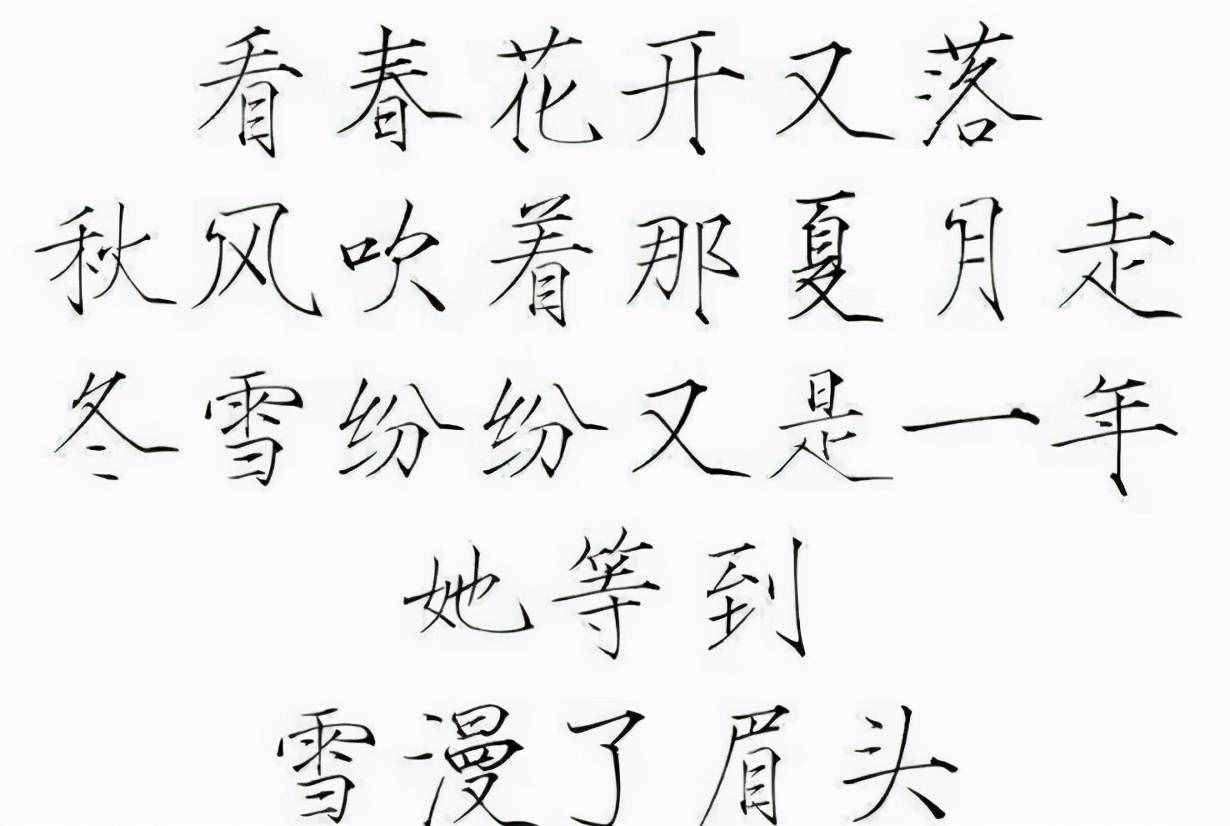 看春花开又落
秋风吹着那夏月走
冬雪纷纷又是一年
她等到
雪漫了眉头